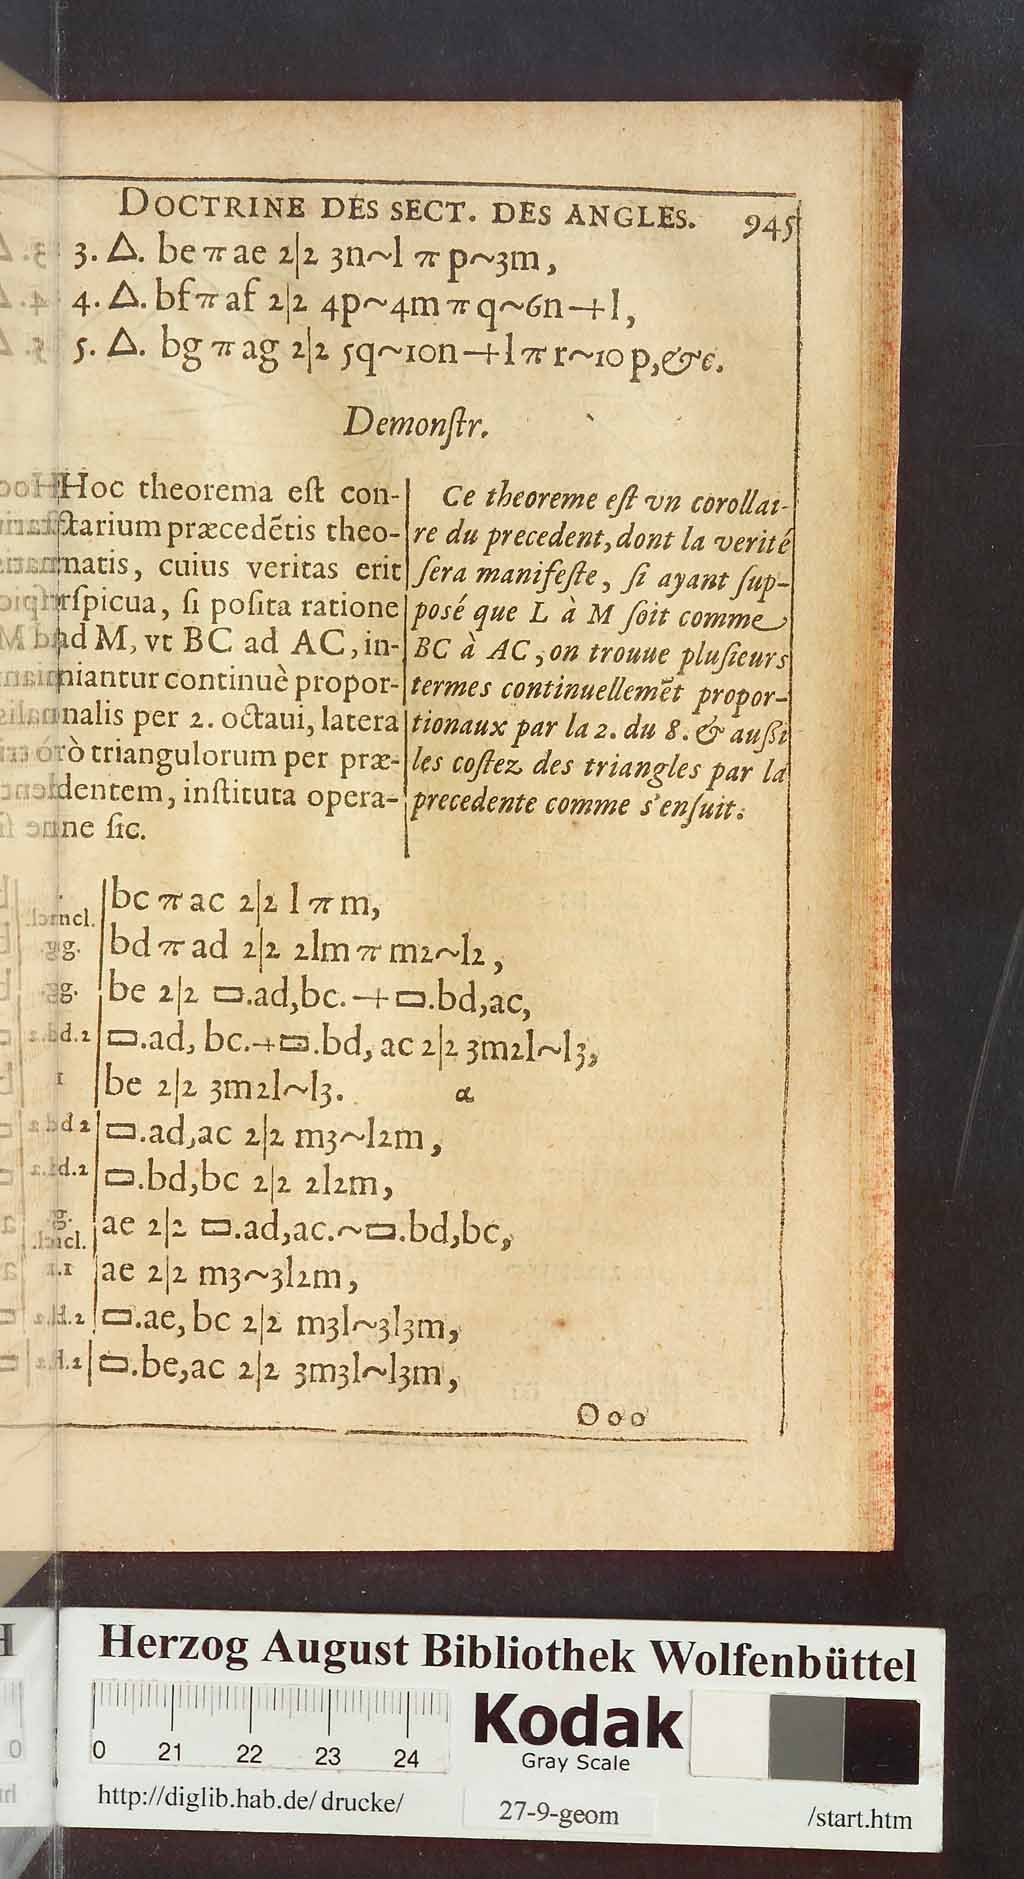 DOCTRINE DES SECT. DES ANGLES. 945
3. △. be π ae 2|2 3n~l π p~3m,
4. △. bf π af 2|2 4p~4m π q~6n+l,
5. △. bg π ag 2|2 5q~10n+l π r~10p,&c.
Demonſtr.
Hoc theorema eſt con-
ſtarium præcedẽtis theo-
matis, cuius veritas erit
rſpicua, ſi poſita ratione
ad M, vt BC ad AC, in-
niantur continuè propor-
nalis per 2. octaui, latera
rò triangulorum per præ-
dentem, inſtituta opera-
ne ſic.
Ce theoreme eſt vn corollai-
re du precedent, dont la verité
ſera manifeſte, ſi ayant ſup-
posé que L à M ſoit comme
BC à AC, on trouue pluſieurs
termes continuellemẽt propor-
tionaux par la 2. du 8. & auſſi
les coſtez des triangles par la
precedente comme s'enſuit:
bc π ac 2|2 l π m,
bd π ad 2|2 2lm π m2~l2,
be 2|2 ▭.ad,bc.+▭.bd,ac,
▭.ad, bc.+▭.bd, ac 2|2 3m2l~l3,
1 be 2|2 3m2l~l3. α
▭.ad,ac 2|2 m3~l2m,
▭.bd,bc 2|2 2l2m,
ae 2|2 ▭.ad,ac.~▭.bd,bc,
ae 2|2 m3~3l2m,
▭.ae, bc 2|2 m3l~3l3m,
▭.be,ac 2|2 3m3l~l3m,
Ooo
Herzog August Bibliothek Wolfenbüttel
0 21 22 23 24
Kodak
Gray Scale
http://diglib.hab.de/drucke/ 27-9-geom /start.htm